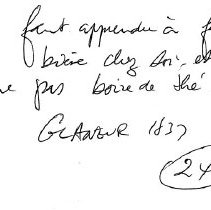 faut apprendre à f
bière chez soi, et
ne pas boire de thé
GLANEUR 1837
24